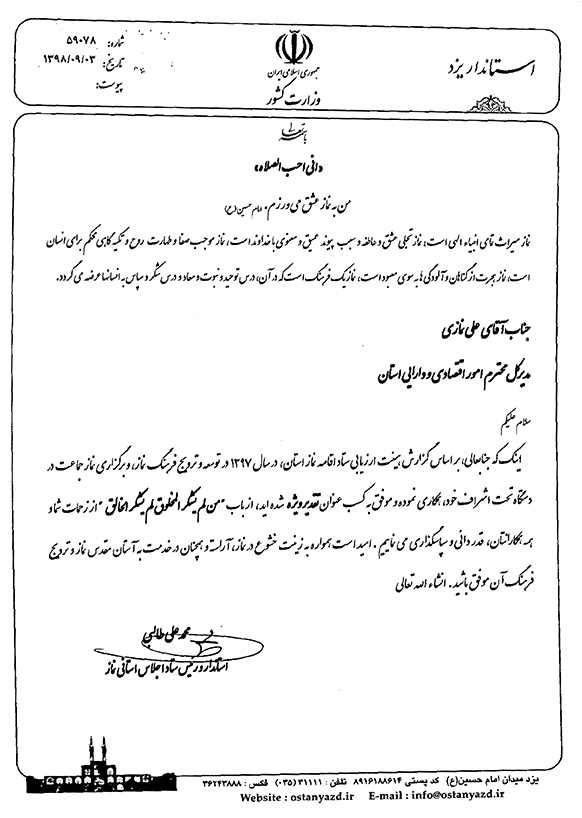 شماره: ۵۹۰۷۸
تاریخ: ۱۳۹۸/۰۹/۰۳
پیوست:
جمهوری اسلامی ایران
وزارت کشور
استاندار یزد
باسمه تعالی
«انی احب الصلاه»
من به نماز عشق می ورزم. امام حسین (ع)
نماز میراث تمامی انبیاء الهی است، نماز تجلی عشق و عاطفه و سبب پیوند عمیق و معنوی با خداوند است، نماز موجب صفا و طهارت روح و تکیه گاهی محکم برای انسان
است، نماز هجرت از گناهان و آلودگی ها به سوی معبود است، نماز یک فرهنگ است که در آن، درس توحید و نبوت و معاد و درس شکر و سپاس به انسانها عرضه می گردد.
جناب آقای علی نمازی
مدیرکل محترم امور اقتصادی و دارایی استان
سلام علیکم
اینک که جنابعالی، بر اساس گزارش هیئت ارزیابی ستاد اقامه نماز استان، در سال ۱۳۹۷ در توسعه و ترویج فرهنگ نماز، و برگزاری نماز جماعت در
دستگاه تحت اشراف خود، همکاری نموده و موفق به کسب عنوان تقدیر ویژه شده اید، از باب "من لم یشکر المخلوق لم یشکر الخالق" از زحمات شما و
همه همکارانتان، قدردانی و سپاسگذاری می نماییم. امید است همواره به زینت خشوع در نماز، آراسته و همچنان در خدمت به آستان مقدس نماز و ترویج
فرهنگ آن موفق باشید. انشاء الله تعالی
محمد علی طالبی
استاندار و رئیس ستاد اجلاس استانی نماز
یزد میدان امام حسین(ع) کد پستی ۸۹۱۶۱۸۸۶۱۴ تلفن: ۳۱۱۱۱ (۰۳۵) فکس: ۳۶۲۴۳۸۸۸
Website : ostanyazd.ir E-mail : info@ostanyazd.ir